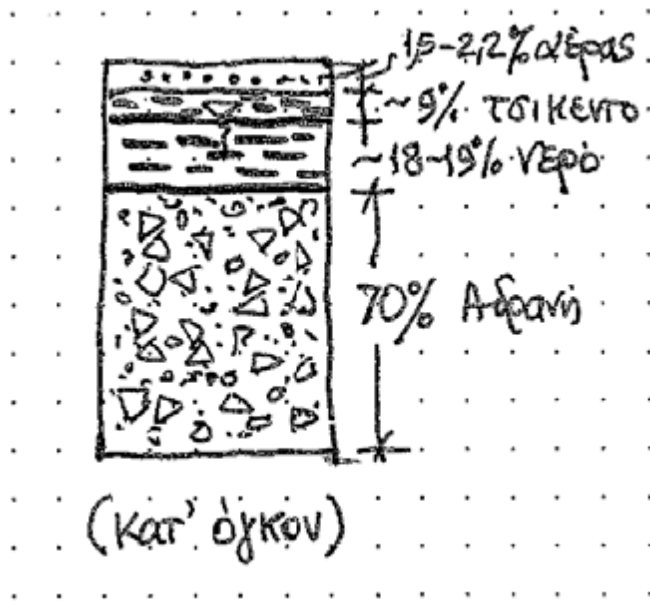 1,5-2,2% αέρας
~9% τσιμεντο
~18-19% νερό
70% Αδρανή
(κατ' όγκον)